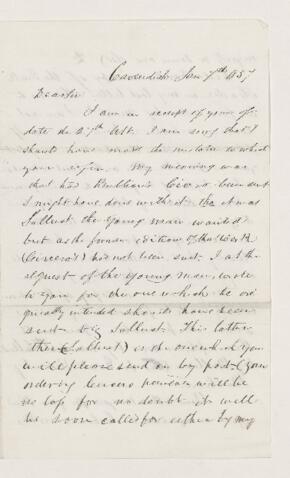 Cavendish Jan 7th 1857
Dear Sir
I am in receipt of yours of
date Dec 27th Ult. I am sorry that I
should have made the mistake to which
you refer. My meaning was
that had Bullion's Cicero been sent
I might have done with it tho it was
Sallust the young man wanted
but as the former edition of that work
(Cicero's) had not been sent. I at the
request of the young man, wrote
to you for the one which he ori
ginally intended should have been
sent viz Sallust. This latter
then (Sallust) is the one which you
will please send on by post. (Your
ordering Cicero previous will be
no loss for no doubt it will
be soon called for either by my